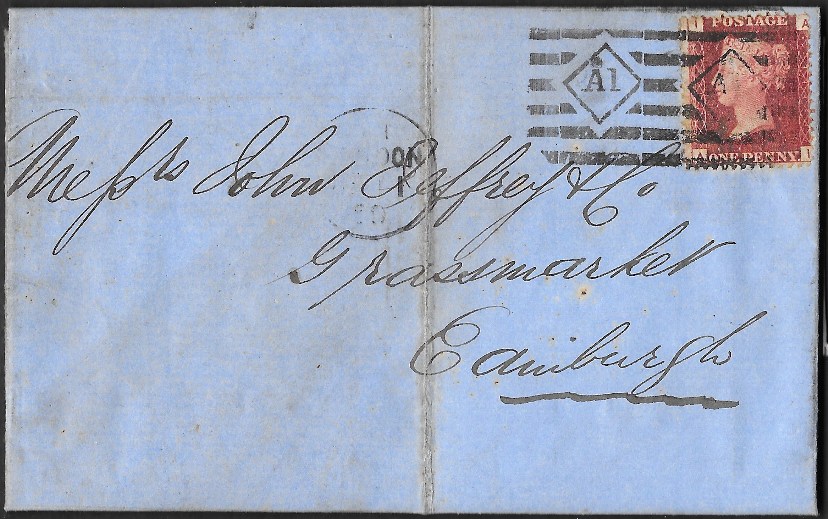 I POSTAGE A
A1
A
A ONE PENNY I
Messrs John Jeffrey & Co
Grassmarket
Edinburgh